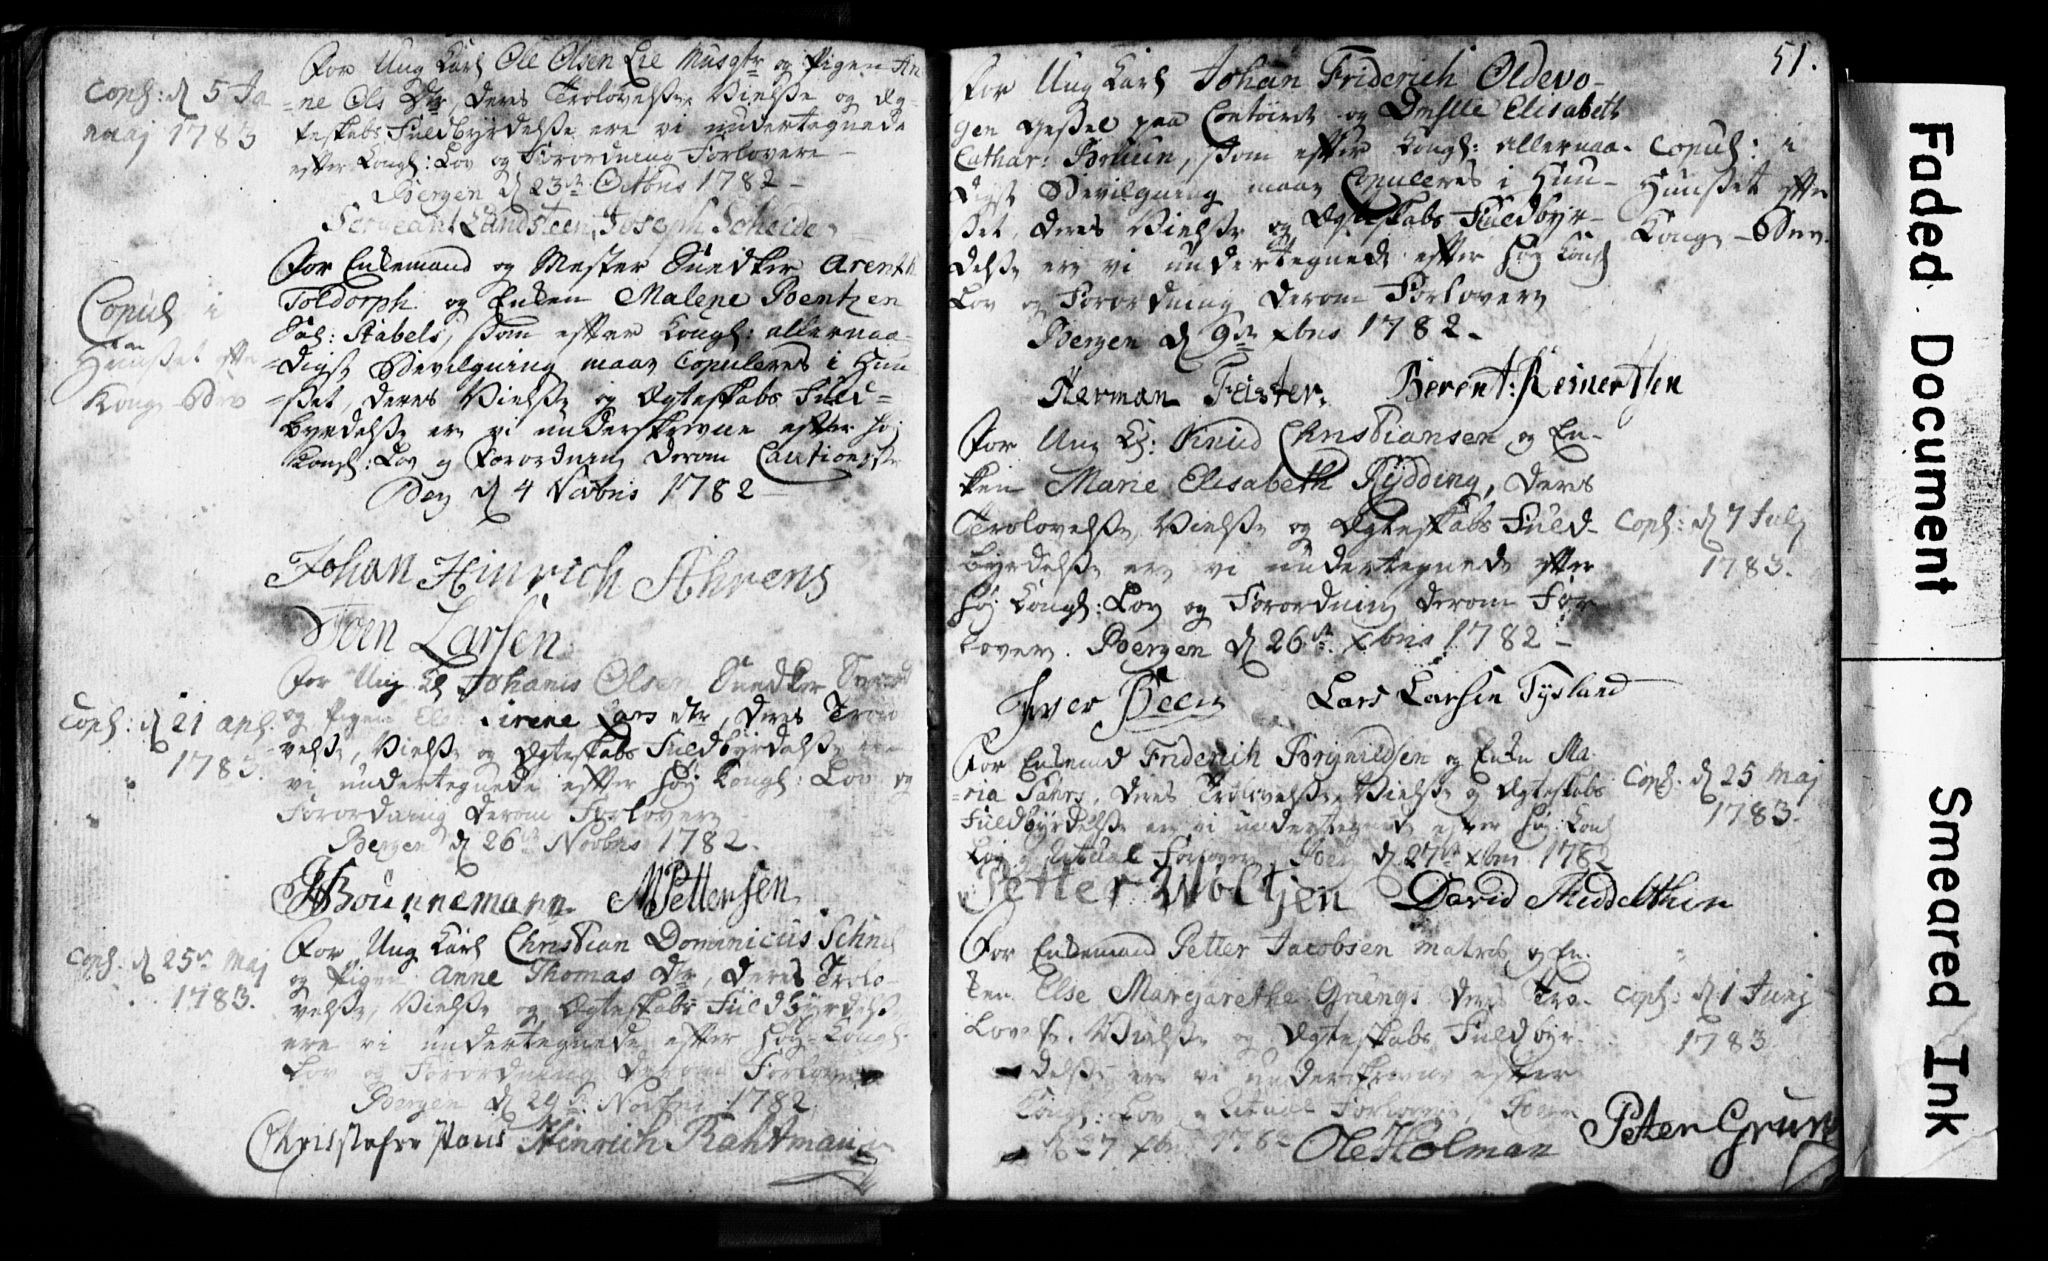 Coph: d 5 Ja
nuaj 1783
For Ung Karl Ole Olsen Lie Musqtr og Pigen An
=ne Ols Dtr, deres Trolovelse, Vielse og Æg-
teskabs Fuldbyrdelse ere vi undertegnede
efter Kongl: Lov og Forordning Forlovere
Bergen d 23de Octbris 1782
Sergeant Landsteen, Joseph Scheide
Copul i
Huuset efter
Kong Bev
For Enkemand og Mester Snedker Arenth
Toldorph og Enken Malene Bentzen
Sal: Stabels, som efter Kongl: allernaa-
digst Bevilgning maae Copuleres i Huu
=set, deres Vielse og Ægteskabs Fuld=
byrdelse ere vi underskrevne efter høj
Kongl: Lov og Forordning derom Cautionister
Berg d 4 Novbris 1782
Johan Hinrich Ahrens
Joen Larsen
Coph: d 21 apl.
1783.
For Ung Kl Johanis Olsen Snedker Svend
og Pigen Else Sirene Lars dtr, deres Trolo
velse, Vielse og Ægteskabs Fuldbyrdelse ere
vi undertegnede efter høj Kongl: Lov og
Forordning derom Forlovere
Bergen d 26de Novbris 1782.
Bounnemann MPettersen
Coph. d 25de Maj
1783.
For Ung Karl Christian Dominicus Schnel
og Pigen Anne Thomas Dtr, deres Trolo-
velse, Vielse og Ægteskabs Fuldbyrdelse
ere vi undertegnede efter høj Kongl:
Lov og Forordning derom Forlovere
Bergen d 29de Novbris 1782
Christofer Pons Hinrich Rahtman
51.
For Ung Karl Johan Friderich Oldevo-
gen Gesel paa Contoiret og Dmslle Elisabeth
Cathar: Bruun, som efter Kongl: allernaa-
digst Bevilgning maae Copuleres i Huu-
set, deres Vielse og Ægteskabs Fuldbyr-
delse ere vi undertegnede efter høj Kongl
Lov og Forordning derom Forlovere
Bergen d 9de Xbris 1782.
Copul: i
Huuset efter
Kong Bev.
Herman Faster. Berent: Reinertsen
For Ung Kl: Knud Christiansen og En-
ken Marie Elisabeth Rydding, deres
Trolovelse, Vielse og Ægteskabs Fuld-
byrdelse ere vi undertegnede efter
høj Kongl: Lov og Forordning derom For
lovere. Bergen d 26de Xbris 1782
Coph: d 7 Julj
1783.
Iver Been Lars Larsen Tysland
For Enkemd Friderich Brynildsen og Enken Ma
=ria Fahrs, deres Trolovelse, Vielse og Ægteskabs
Fuldbyrdelse ere vi undertegnede efter høj Kongl
Lov og Ritual Forlovere, Berg d 27de Xbris 1782
Coph: d 25 Maj
1783.
Petter Woltjen David Middelthun
For Enkemand Petter Jacobsen Matros og En-
ken Else Margarethe Gruengs deres Tro-
lovelse, Vielse og Ægteskabs Fuldbyr-
delse ere vi underskrevne efter
Kongl: Lov og Ritual Forlovere,
d 27 Xbris 1782
Coph: d 1 Junj
1783.
Ole Holman Peter Grun
Faded Document
Smeared Ink